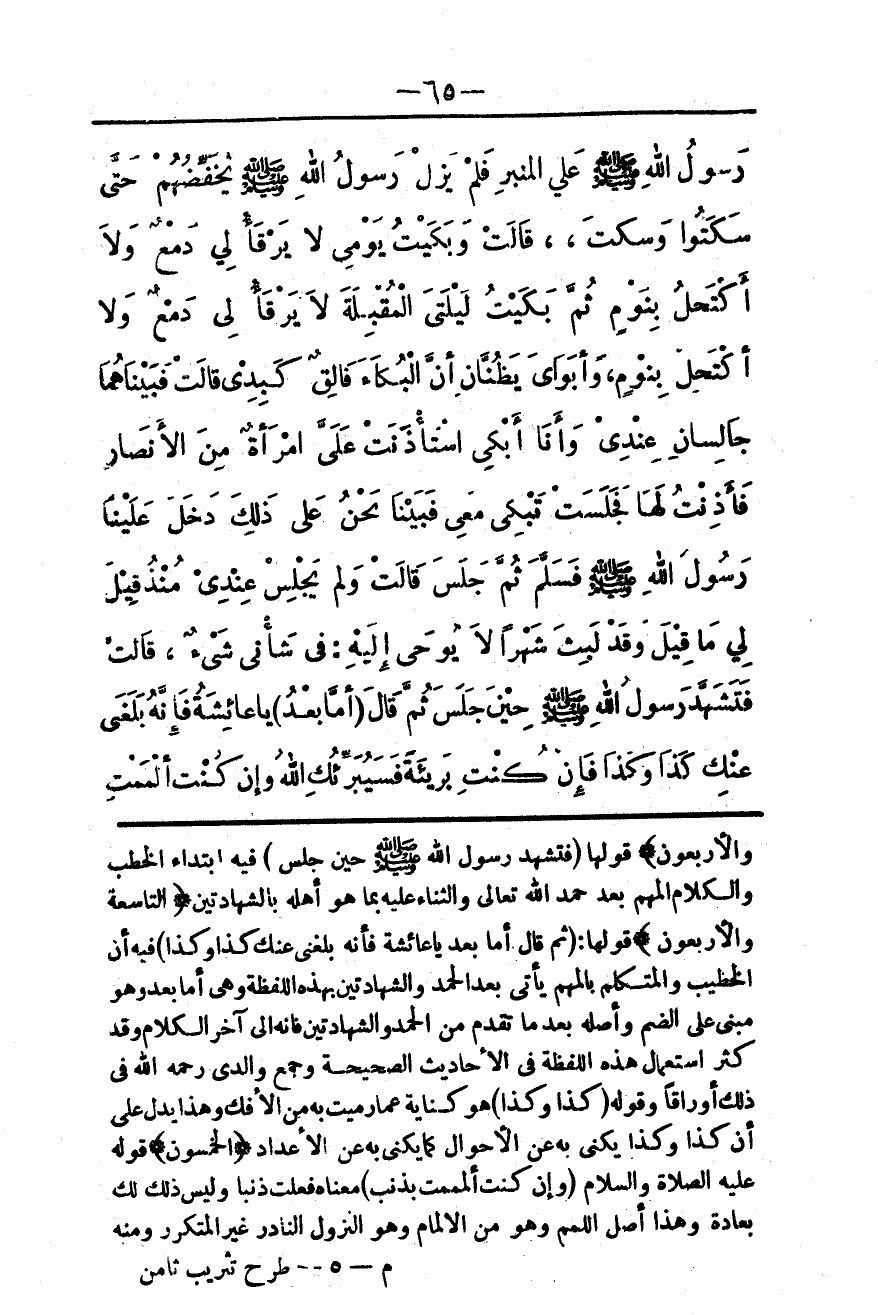 —٦٥—
رَسولُ اللهِ ﷺ عَلي المنبرِ فَلمْ يَزلْ رَسولُ اللهِ ﷺ يُخَفِّضُهُمْ حَتَّى
سَكَتُوا وَسكتَ ، ، قَالَتْ وَبَكَيْتُ يَوْمِى لا يَرْقَأُ لِي دَمْعٌ وَلاَ
أَكْتَحلُ بِنَوْمٍ ثُمَّ بَكَيْتُ لَيْلَتَىَ الْمُقْبِلَةَ لاَ يَرْقَأُ لِى دَمْعٌ وَلا
أكْتَحِلُ بِنوْمٍ، وَأبَوَاىَ يَظُنَّانِ أنَّ الْبُكاَءَ فَالِقٌ كَبِدِى قالَتْ فَبَيْنَاهُمَا
جَالِسانِ عِنْدِىْ وَأَنَا أَبْكِى اسْتَأْذَنَتْ عَلَىَّ امْرَأةٌ مِنَ الأَنصَارِ
فَأَذِنْتُ لَهَا فَجَلَسَتْ تَبْكِى مَعِى فَبَيْنَا نَحْنُ عَلى ذَلِكَ دَخَلَ عَلَيْنَا
رَسُولَ اللهِ ﷺ فَسَلَّمَ ثُمَّ جَلَسَ قَالَتْ وَلم يَجْلِسْ عِنْدِىْ مُنْذُ قِيْلَ
لِي مَا قِيْلَ وَقَدْ لَبِثَ شَهْراً لاَ يُوحَى إِلَيْهِ : فى شَأْنى شَىْءٌ ، قَالتْ
فَتَشَهَّدَ رَسولُ اللهِ ﷺ حِيْنَ جَلَسَ ثُمَّ قَالَ (أمَّا بعْدُ) يا عائِشَةُ فَإنَّهُ بَلَغَنى
عنْكِ كَذَا وَكَذَا فَإن كُنْتِ بَرِيئَةً فَسَيُبَرِّئُكِ اللهُ وإن كُنْت ألْمَمْتِ
والأربعون﴾ قولها (فتشهد رسول الله ﷺ حين جلس ) فيه ابتداء الخطب
والكلام المهم بعد حمد الله تعالى والثناء عليه بما هو أهله بالشهادتين ﴿ التاسعة
والأربعون ﴾ قولها: (ثم قال أما بعد ياعائشة فأنه بلغنى عنك كذا وكذا) فيه أن
الخطيب والمتكلم بالمهم يأتى بعد الحمد والشهادتين بهذه اللفظة وهى أما بعد وهو
مبنى على الضم وأصله بعد ما تقدم من الحمد والشهادتين فانه الى آخر الكلام وقد
كثر استعمال هذه اللفظة فى الأحاديث الصحيحة وجمع والدى رحمه الله فى
ذلك أوراقاً وقوله ( كذا وكذا) هو كناية عما رميت به من الأفك وهذا يدل على
أن كذا وكذا يكنى به عن الأحوال كما يكنى به عن الأعداد ﴿الخمسون﴾ قوله
عليه الصلاة والسلام (وإن كنت ألممت بذنب) معناه فعلت ذنبا وليس ذلك لك
بعادة وهذا أصل اللمم وهو من الالمام وهو النزول النادر غير المتكرر ومنه
م — ٥ -- طرح تثريب ثامن